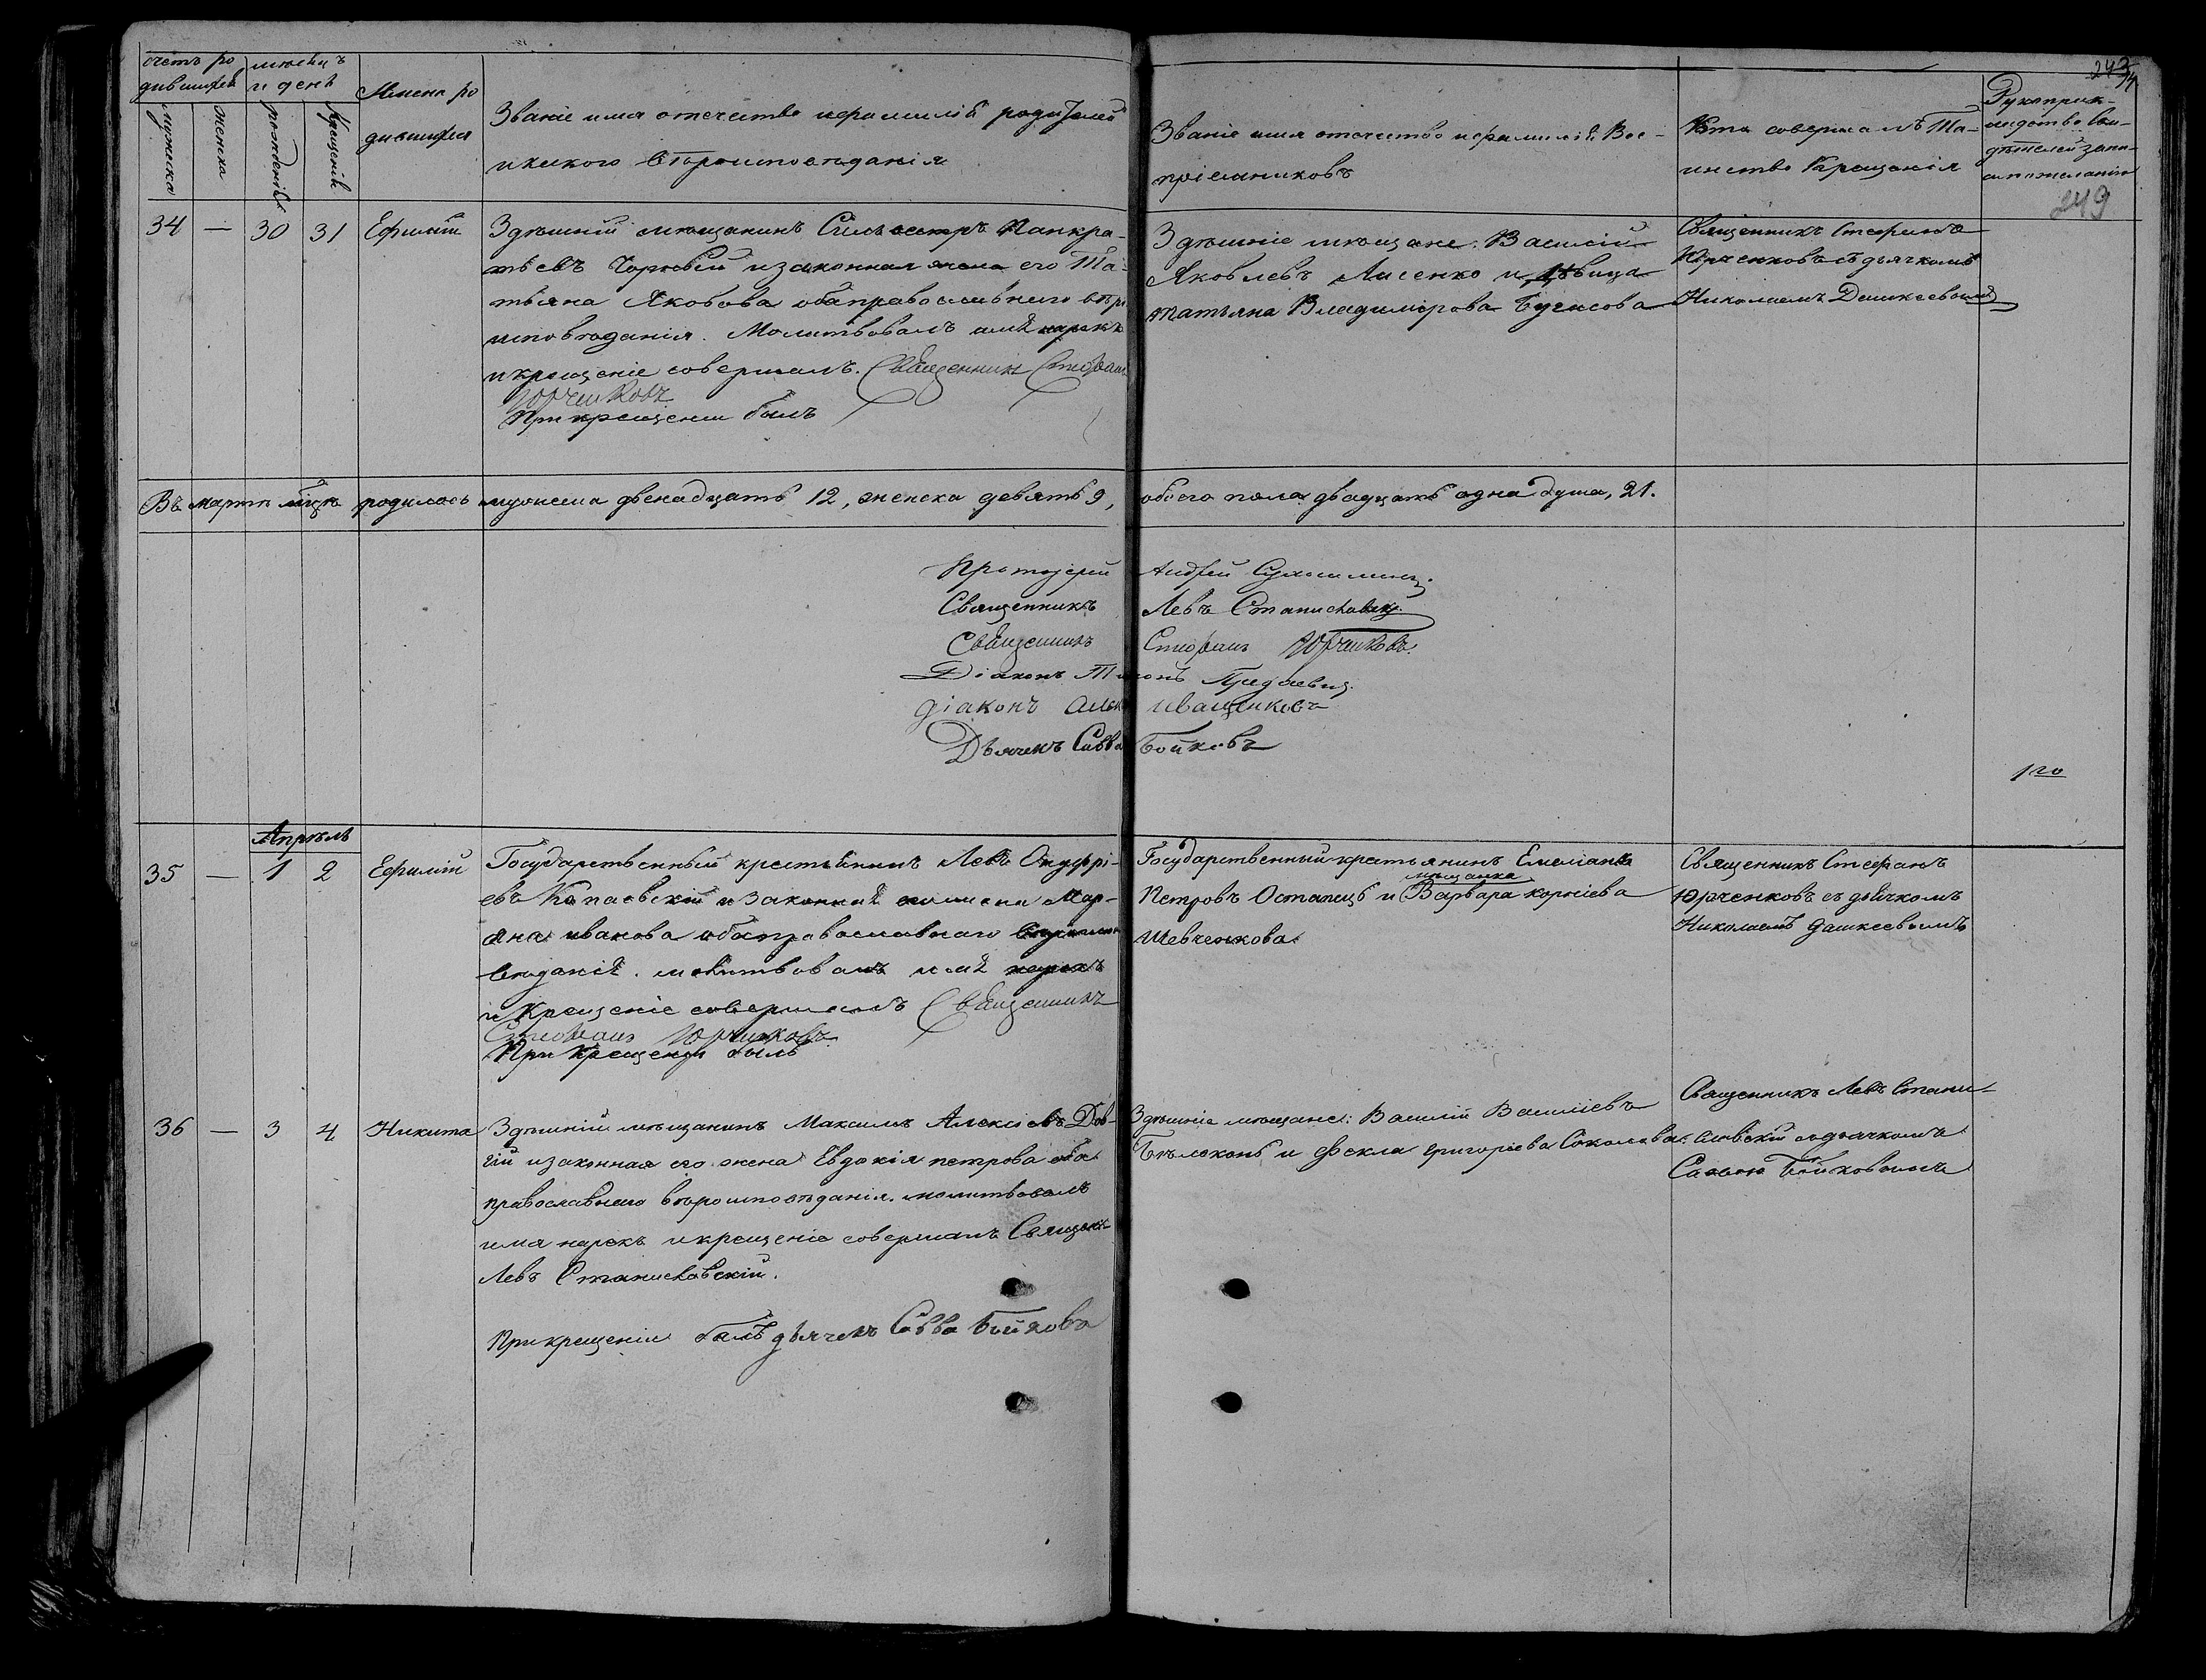 243
249
счетъ ро
дившихся
мужеска
женска
месяцъ
и день
рожденія
крещенія
Имена ро
дившихся
Званіе имя отечество и фамилія родителей
и какого вероисповеданія
Званіе имя отечество и фамилія Вос-
пріемниковъ
Кто совершалъ Та-
инство Крещенія
Рукоприк-
ладство сви-
дѣтелей запи-
си по желанію
34 — 30 31 Ефимій
Здѣшній мѣщанинъ Сильвестръ Панкра-
тьевъ и законная жена его Та-
тьяна Яковова оба православнаго вѣро
исповѣданія. Молитвовалъ имя нарекъ
и крещеніе совершалъ. Священникъ Стефанъ
Юрченковъ
При крещеніи былъ
Здѣшніе мѣщане: Василій
Яковлевъ Лисенко и дѣвица
Татьяна Владимірова
Священникъ Стефанъ
Юрченковъ съ дьячкомъ
Николаемъ Дашкеевымъ
Въ мартѣ м̃цѣ родилось мужеска двенадцать 12, женска девять 9, обоего пола двадцать одна душа, 21.
Протоіерей Андрей
Священникъ Левъ Станиславскій
Священникъ Стефанъ Юрченковъ.
Діаконъ
Діаконъ Иващенковъ
Дьячекъ Савва Бойковъ
Апрѣль
35 — 1 2 Ефимій
Государственный крестьянинъ Левъ Онуфрі-
евъ и законная Мар-
яна иванова оба православнаго вероиспо
веданія. молитвовалъ имя нарекъ
и Крещеніе совершалъ Священникъ
Стефанъ Юрченковъ
При Крещеніи былъ
Государственный крестьянинъ Емеліанъ
мещанка
Петровъ Остапецъ и Варвара корніева
Шевченкова
Священникъ Стефанъ
Юрченковъ съ дьячкомъ
Николаемъ Дашкеевымъ
36 — 3 4 Никита
Здѣшній мѣщанинъ Максимъ Алексіевъ Дов-
гій и законная его жена Евдокія петрова оба
православнаго вѣроисповѣданія. молитвовалъ
имя нарекъ и крещеніе совершалъ Священ
Левъ Станиславскій.
При крещеніи былъ дьячекъ Савва Бойковъ
Здѣшніе мѣщане: Василій Василіевъ
Бѣлоконь и Фекла Григоріева Соколова.
Священникъ Левъ Стани-
славскій съ дьячкомъ
Саввою Бойковымъ